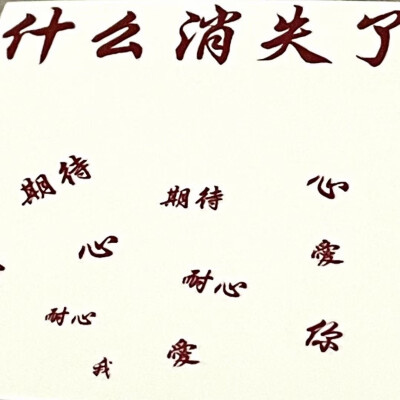 什么消失了
期待
期待
心
心
愛
耐心
耐心
你
愛
我